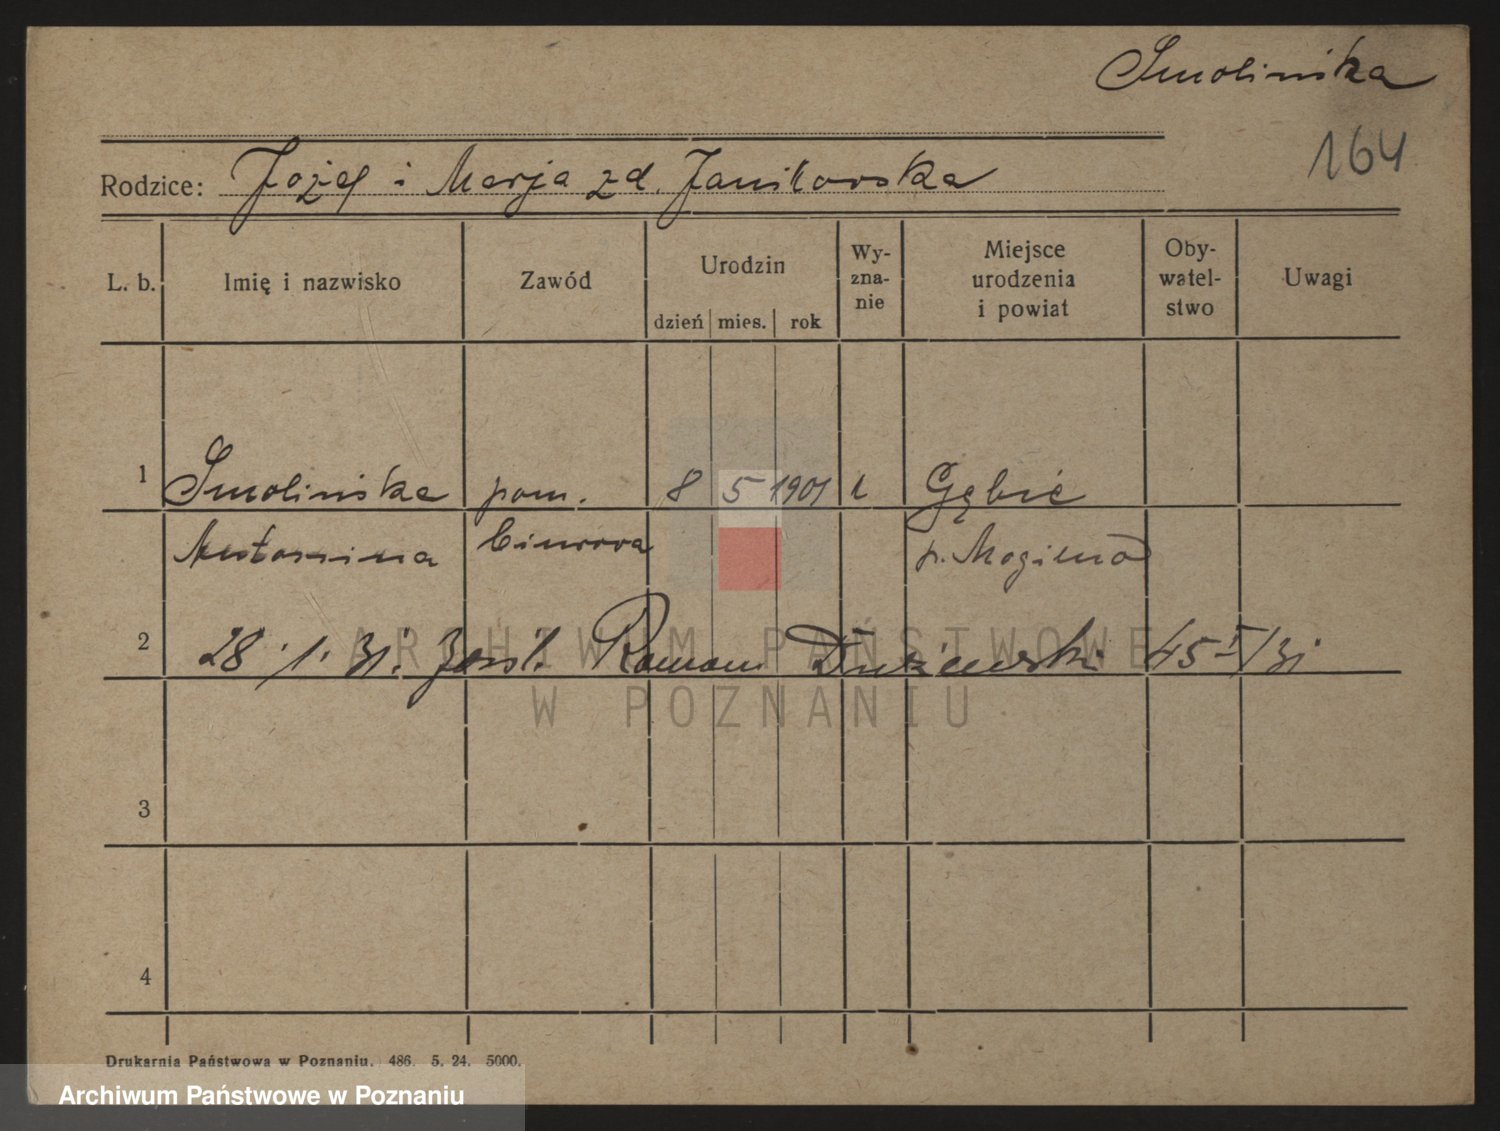 Smolińska
164
Rodzice: Józef i Marja zd. Janikowska
L. b. Imię i nazwisko Zawód Urodzin Wy-zna-nie Miejsce urodzenia i powiat Oby-watel-stwo Uwagi
dzień mies. rok
1 Smolińska pom. 8 5 1901 k Gębić
Antonina biurowa p. Mogilno
2 28.1.31. zaśl. Roman 45 I/31
ARCHIWUM PAŃSTWOWE
W POZNANIU
3
4
Drukarnia Państwowa w Poznaniu. 486. 5. 24. 5000.
Archiwum Państwowe w Poznaniu